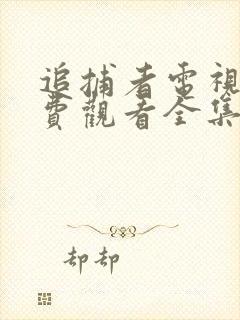 追捕者電視
費觀看全集
却却